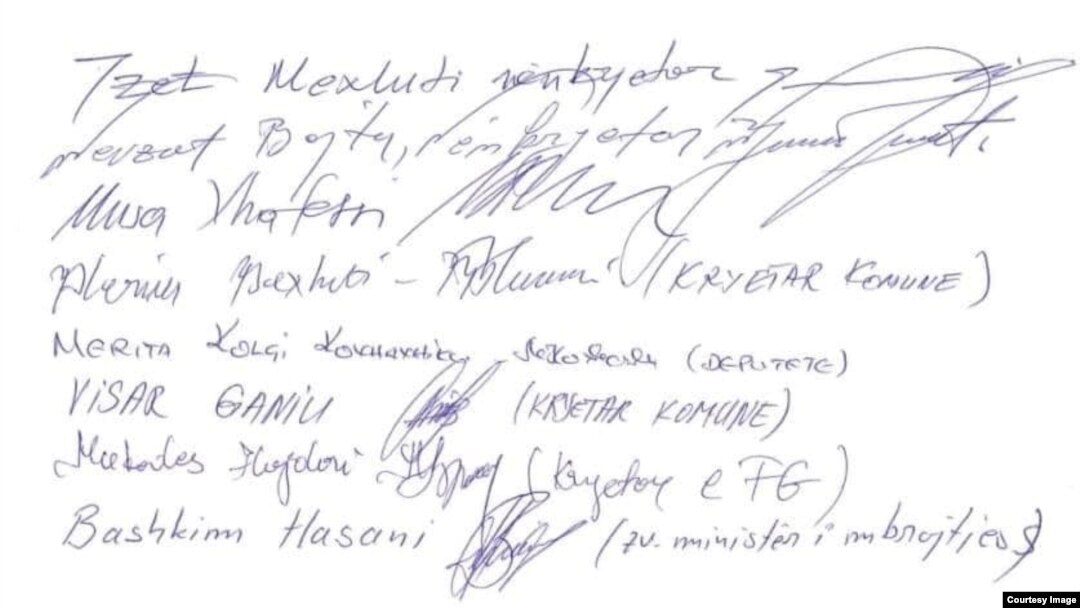 Izet Mexhiti nënkryetar
Nevzat Bejta, nënkryetar
Musa Xhaferri
Blerim Bexheti - (KRYETAR KOMUNE)
MERITA Kolçi (DEPUTETE)
ViSAR GANiU (KRYETAR KOMUNE)
Hajdari (Kryetar e FG)
Bashkim Hasani (zv. ministër i mbrojtjes)
Courtesy Image